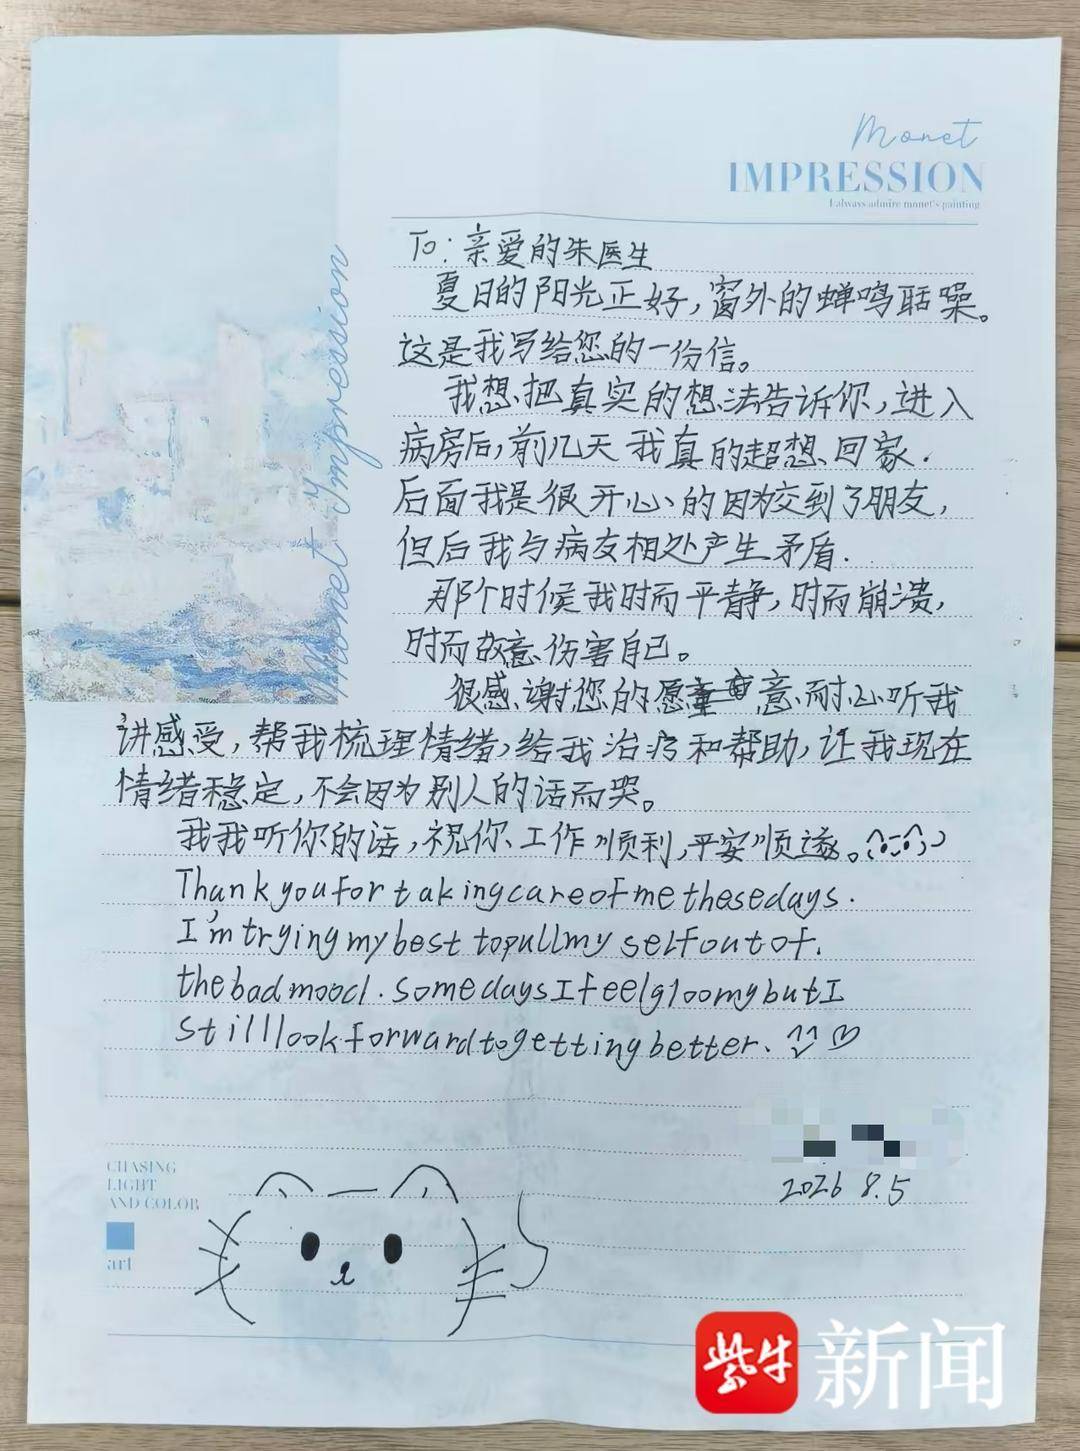 Monet
IMPRESSION
I always admire monet's painting
Monet Impression
To：亲爱的朱医生
夏日的阳光正好，窗外的蝉鸣聒噪。
这是我写给您的一份信。
我想把真实的想法告诉你，进入
病房后，前几天我真的超想回家.
后面我是很开心的因为交到了朋友，
但后我与病友相处产生矛盾.
那个时候我时而平静，时而崩溃，
时而故意伤害自己。
很感谢您的愿意耐心听我
讲感受，帮我梳理情绪，给我治疗和帮助，让我现在
情绪稳定，不会因为别人的话而哭。
我我听你的话，祝你、工作顺利，平安顺遂。
Thank you for taking care of me these days.
I'm trying my best to pull my self out of.
the bad mood. some days I feel gloomy but I
still look forward to getting better.
2026 8.5
CHASING
LIGHT
AND COLOR
art
紫牛新闻